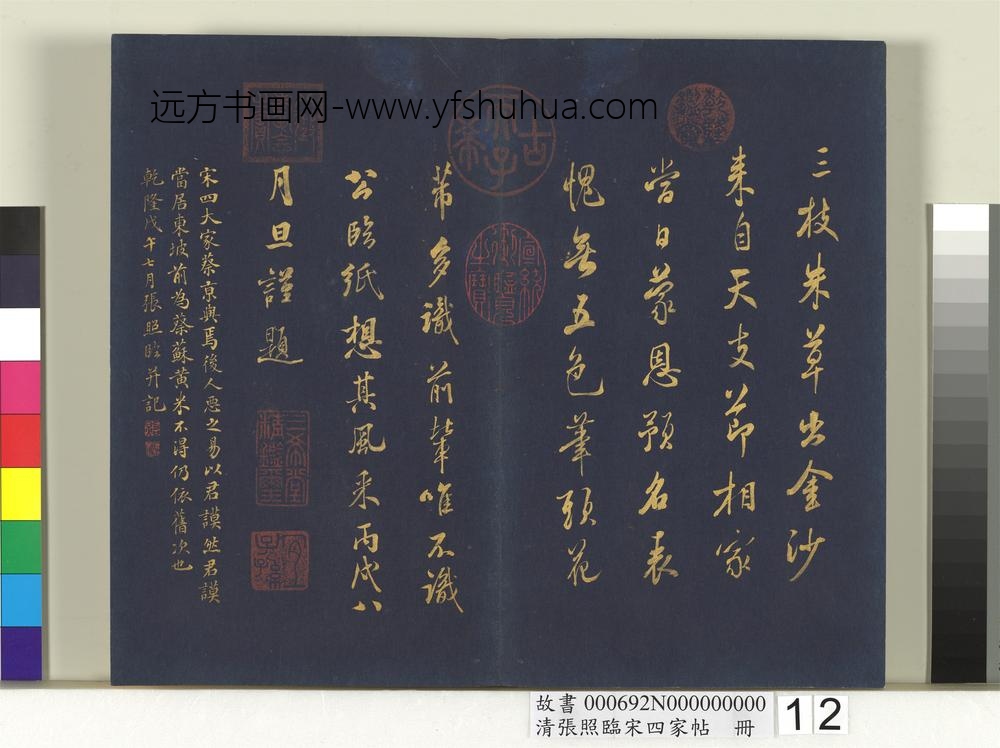 远方书画网-www.yfshuhua.com
三枝朱草出金沙
来自天支節相家
當日蒙恩預名表
愧無五色筆頭花
芾多識前輩唯不識
公臨紙想其風采丙戌八
月旦謹題
宋四大家蔡京與焉後人惡之易以君謨然君謨
當居東坡前為蔡蘇黄米不得仍依舊次也
乾隆戊午七月張照臨并記
古希天子
乾隆鑑賞
宣統御覽之寶
三希堂精鑑璽
宜子孫
故書 000692N000000000
清張照臨宋四家帖 冊
12